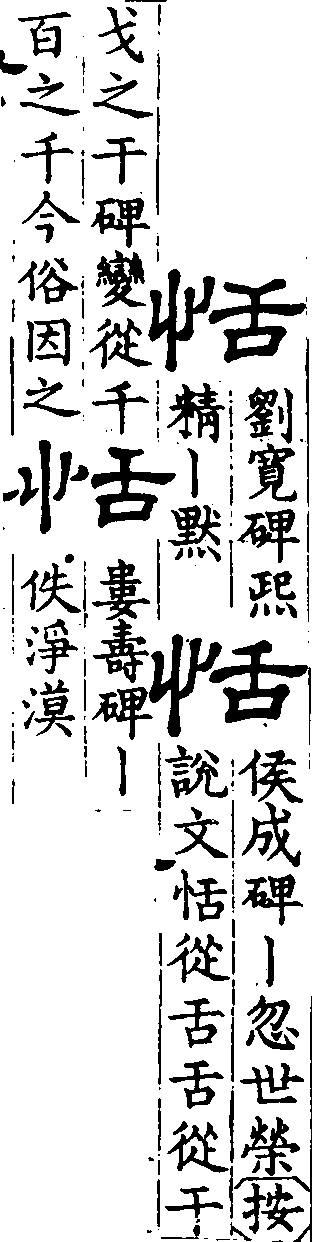 恬
劉寬碑熙
精丨默
恬
侯成碑丨忽世榮按
說文恬從舌舌從干
戈之干碑變從千
百之千今俗因之
恬
婁壽碑丨
佚淨漠